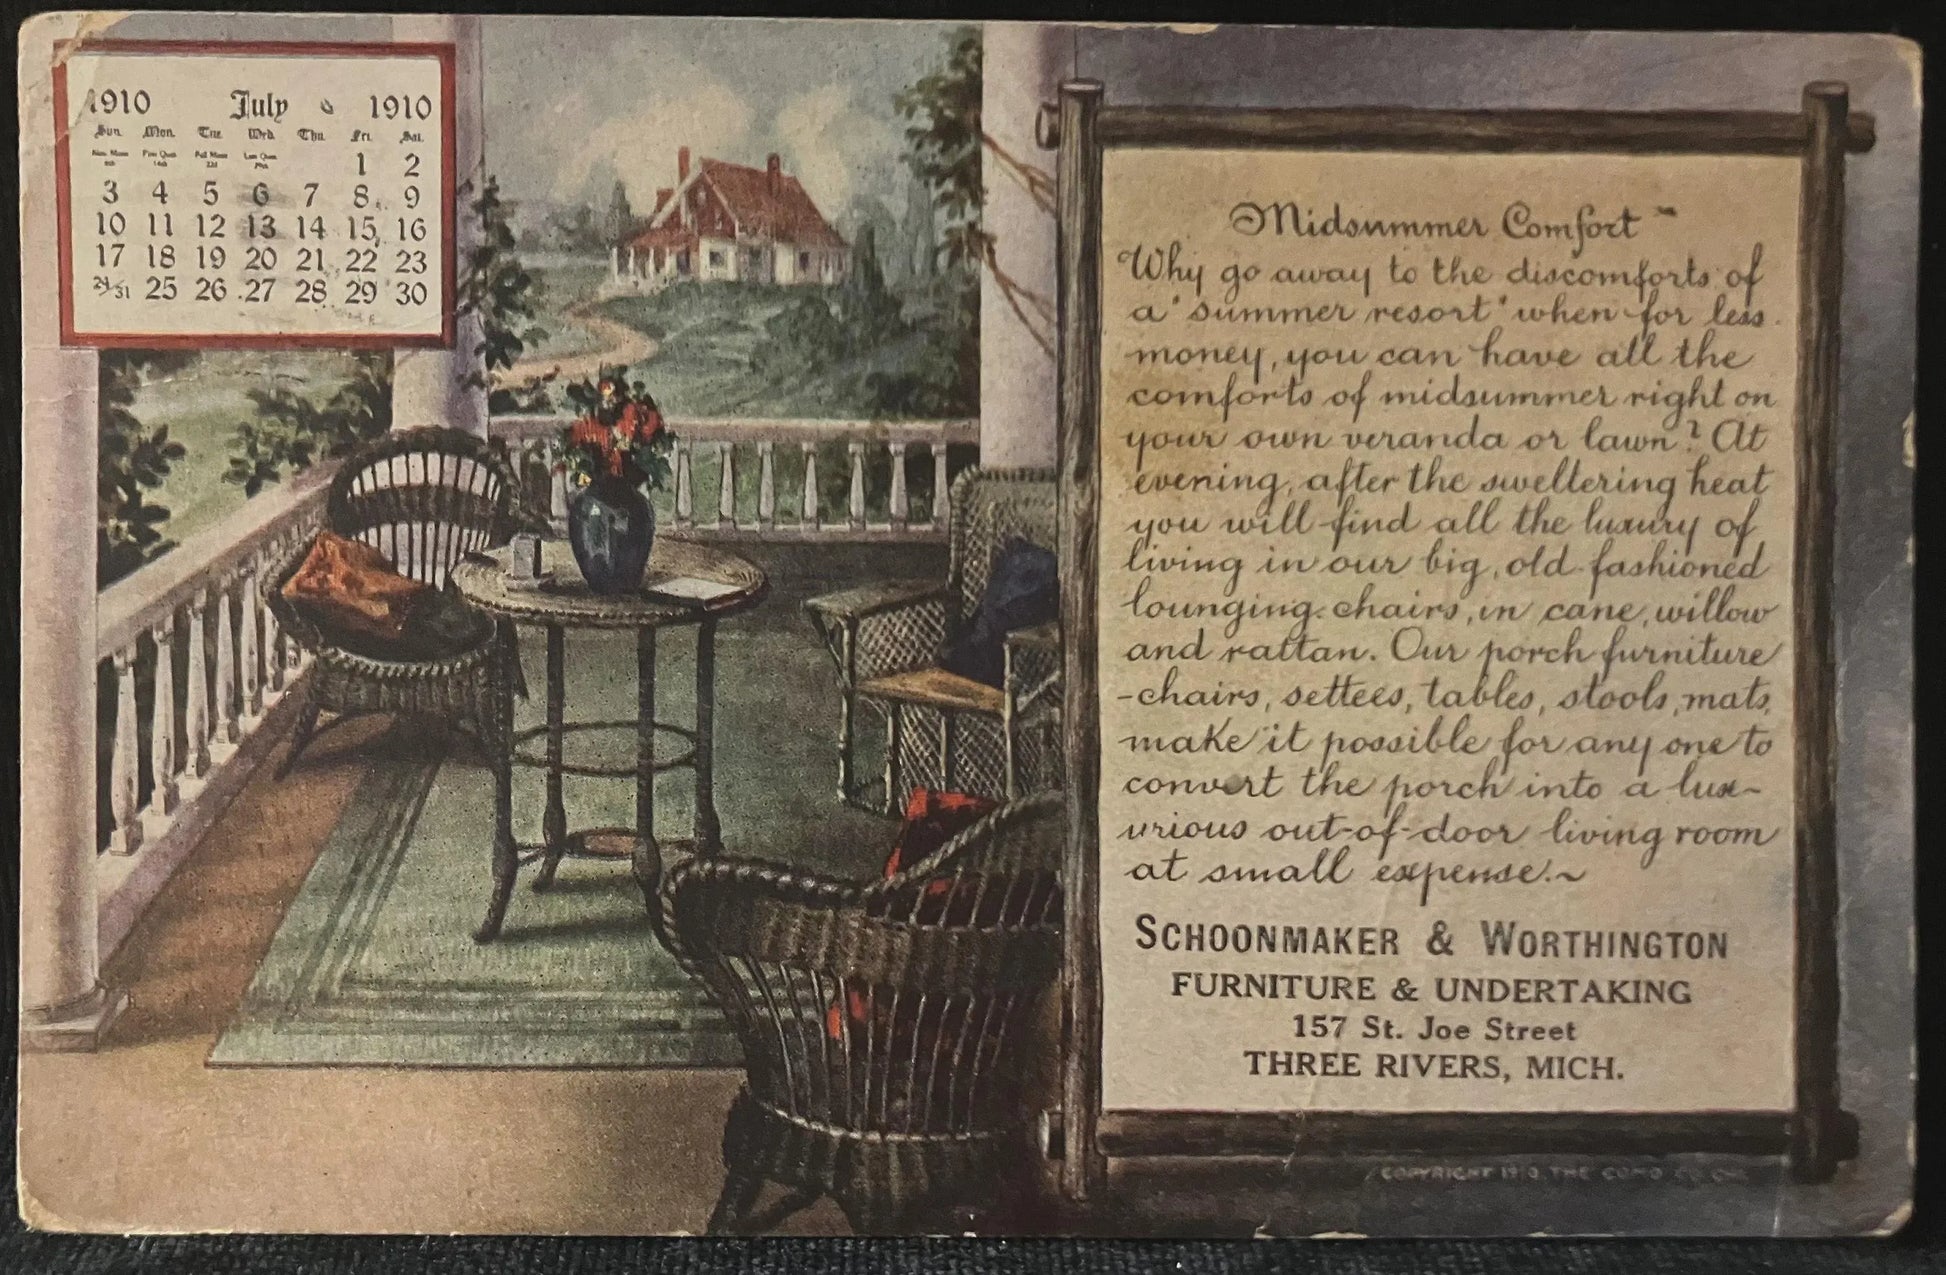 1910 July 1910
Sun. Mon. Tue. Wed. Thu. Fri. Sat.
1 2
3 4 5 6 7 8 9
10 11 12 13 14 15 16
17 18 19 20 21 22 23
24/31 25 26 27 28 29 30
Midsummer Comfort
Why go away to the discomforts of
a "summer resort" when for less
money, you can have all the
comforts of midsummer right on
your own veranda or lawn? At
evening, after the sweltering heat
you will find all the luxury of
living in our big, old-fashioned
lounging chairs, in cane, willow
and rattan. Our porch furniture
-chairs, settees, tables, stools, mats,
make it possible for any one to
convert the porch into a lux-
urious out-of-door living room
at small expense.~
SCHOONMAKER & WORTHINGTON
FURNITURE & UNDERTAKING
157 St. Joe Street
THREE RIVERS, MICH.
COPYRIGHT 1910, THE